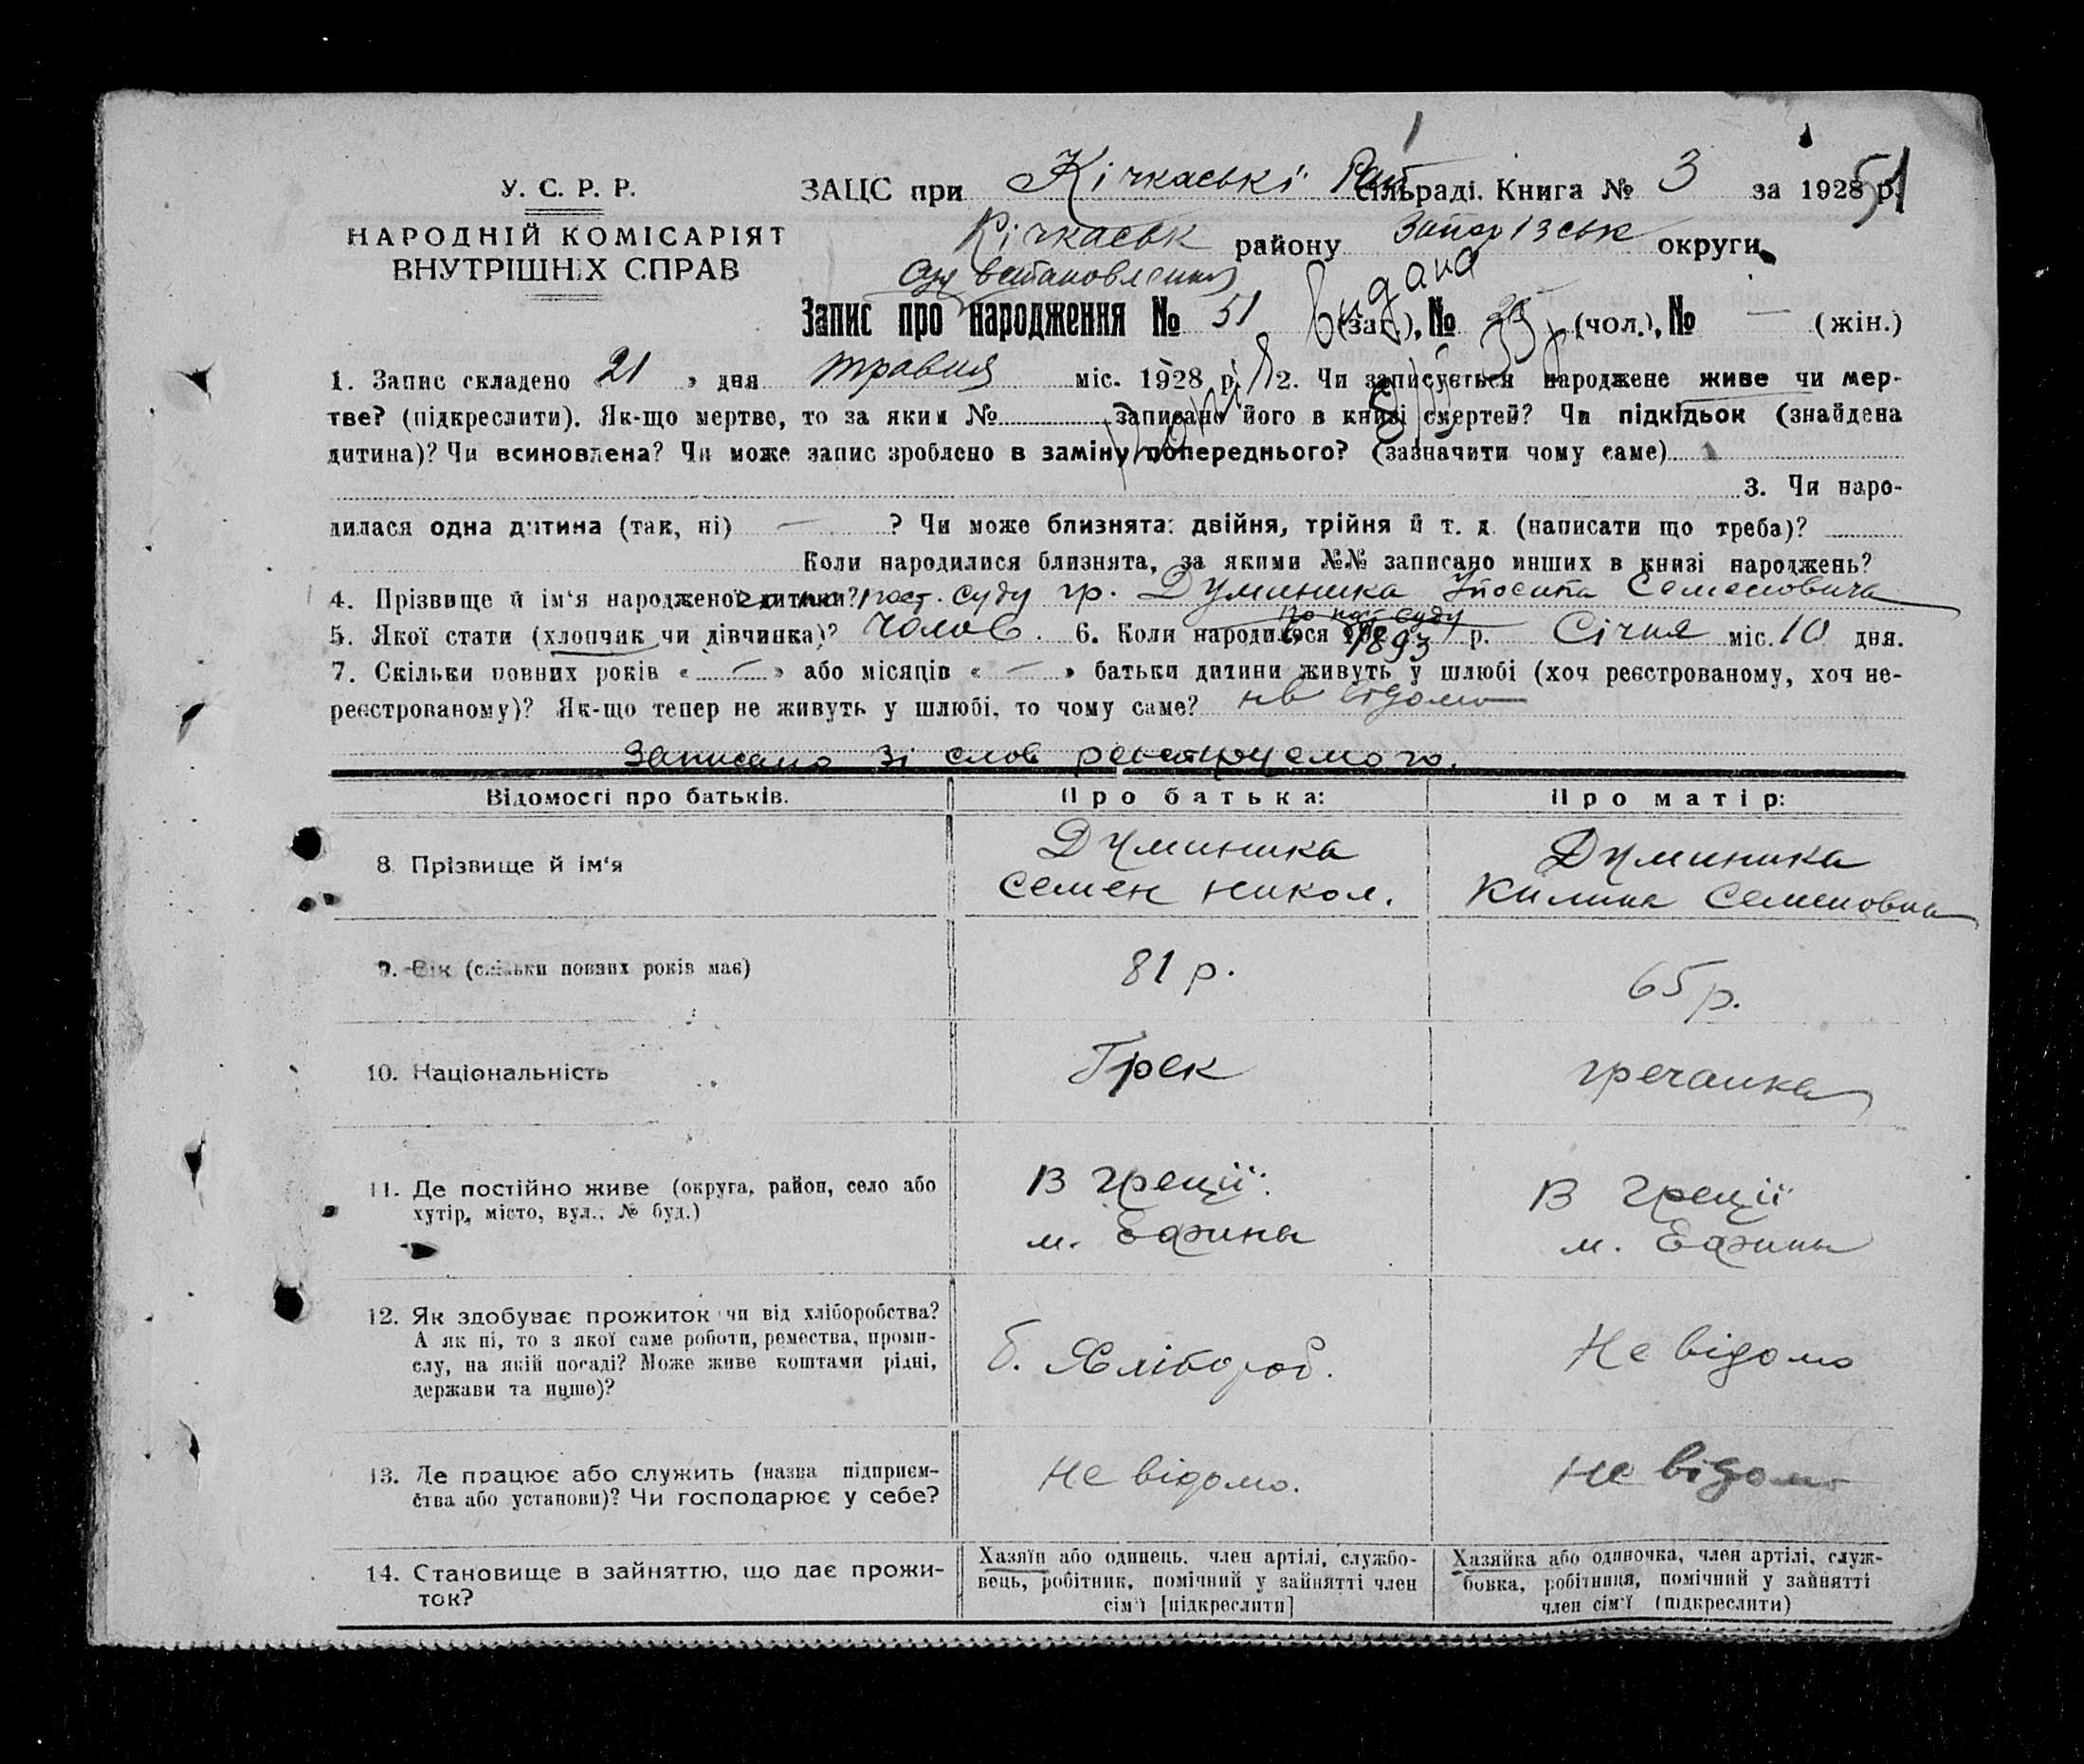 51
У. С. Р. Р.
НАРОДНІЙ КОМІСАРІЯТ
ВНУТРІШНІХ СПРАВ
ЗАЦС при Кічкаські Рай сільраді. Книга № 3 за 1928 р.
Кічкаськ району Запорізськ округи
встановлення
Запис про народження № 51 (заг.), № 25 (чол.), № — (жін.)
видана
1. Запис складено 21 » дня травня міс. 1928 р. 2. Чи записується народжене живе чи мер-
тве? (підкреслити). Як-що мертве, то за яким № записано його в книзі смертей? Чи підкідьок (знайдена
дитина)? Чи всиновлена? Чи може запис зроблено в заміну попереднього? (зазначити чому саме)
3. Чи наро-
дилася одна дитина (так, ні) — ? Чи може близнята: двійня, трійня й т. д. (написати що треба)?
Коли народилися близнята, за якими №№ записано инших в книзі народжень?
4. Прізвище й ім‘я народженої дитини? пост. суду гр. Думиника Семеновича
по пост суду
5. Якої стати (хлопчик чи дівчинка)? Чолов. 6. Коли народилося 1893 р. Січня міс. 10 дня.
7. Скільки повних років « — » або місяців « — » батьки дитини живуть у шлюбі (хоч реєстрованому, хоч не-
реєстрованому)? Як-що тепер не живуть у шлюбі, то чому саме? не відомо
Записано зі слов
Відомості про батьків. Про батька: Про матір:
8. Прізвище й ім‘я Думиника Думиника
Семен Никол. Килина Семеновна
9. Вік (скільки повних років має) 81 р. 65 р.
10. Національність Грек гречанка
11. Де постійно живе (округа, район, село або В Греції В Греції
хутір, місто, вул., № буд.) м. Еафины м. Еафины
12. Як здобуває прожиток чи від хліборобства?
А як ні, то з якої саме роботи, ремества, проми-
слу, на якій посаді? Може живе коштами рідні, б. Хлібороб. Не відомо
держави та инше)?
13. Де працює або служить (назва підприєм- Не відомо. Не відомо
ства або установи)? Чи господарює у себе?
14. Становище в зайняттю, що дає прожи-
ток?
Хазяїн або одинець, член артілі, службо-
вець, робітник, помічний у зайнятті член
сім‘ї [підкреслити]
Хазяйка або одиночка, член артілі, служ-
бовка, робітниця, помічний у зайнятті
член сім‘ї (підкреслити)